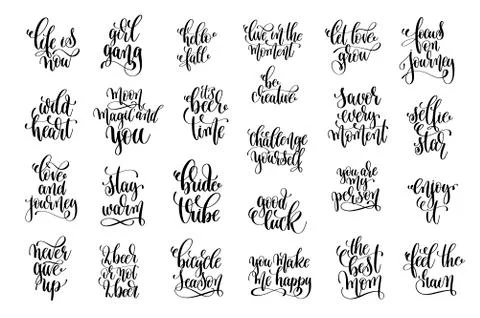 life is
now
girl
gang
hello
fall
live in the
moment
let love
grow
focus
on
journey
be
creative
wild
heart
Moon
Magic and
you
it's
beer
time
challenge
yourself
savor
every
moment
selfie
star
love
and
journey
stay
warm
bride
tribe
good
luck
you are
my
person
enjoy
it
never
give
up
2 beer
or not
2 beer
bicycle
season
you make
me happy
the
best
mom
feel the
rain